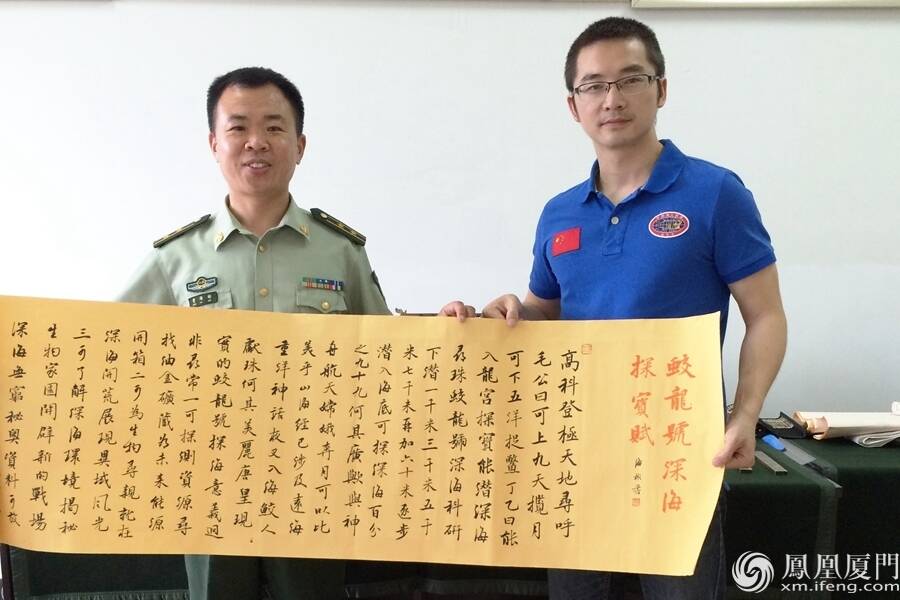 蛟龍號深海
探寶賦
高科登極天地尋呼
毛公曰可上九天攬月
可下五洋捉鱉丁乙曰能
入龍宮探寶能潛深海
尋珠蛟龍號深海科研
下潛一千米三千米五千
米七千米再加六十米逐步
潛入海底可探深海百分
之九十九何其廣歟與神
舟航天嫦娥奔月可以比
美乎山海經已涉及遠海
重洋神話故又入海鮫人
獻珠何其美麗唐皇現
寶的蛟龍號探海意義迥
非尋常一可探測資源尋
找油金礦藏為未來能源
開箱二可為生物尋親乾在
深海開荒展現異域風光
三可了解深海環境揭秘
生物家園開辟新的戰場
深海無窮秘奧資料可放
鳳凰厦門
xm.ifeng.com